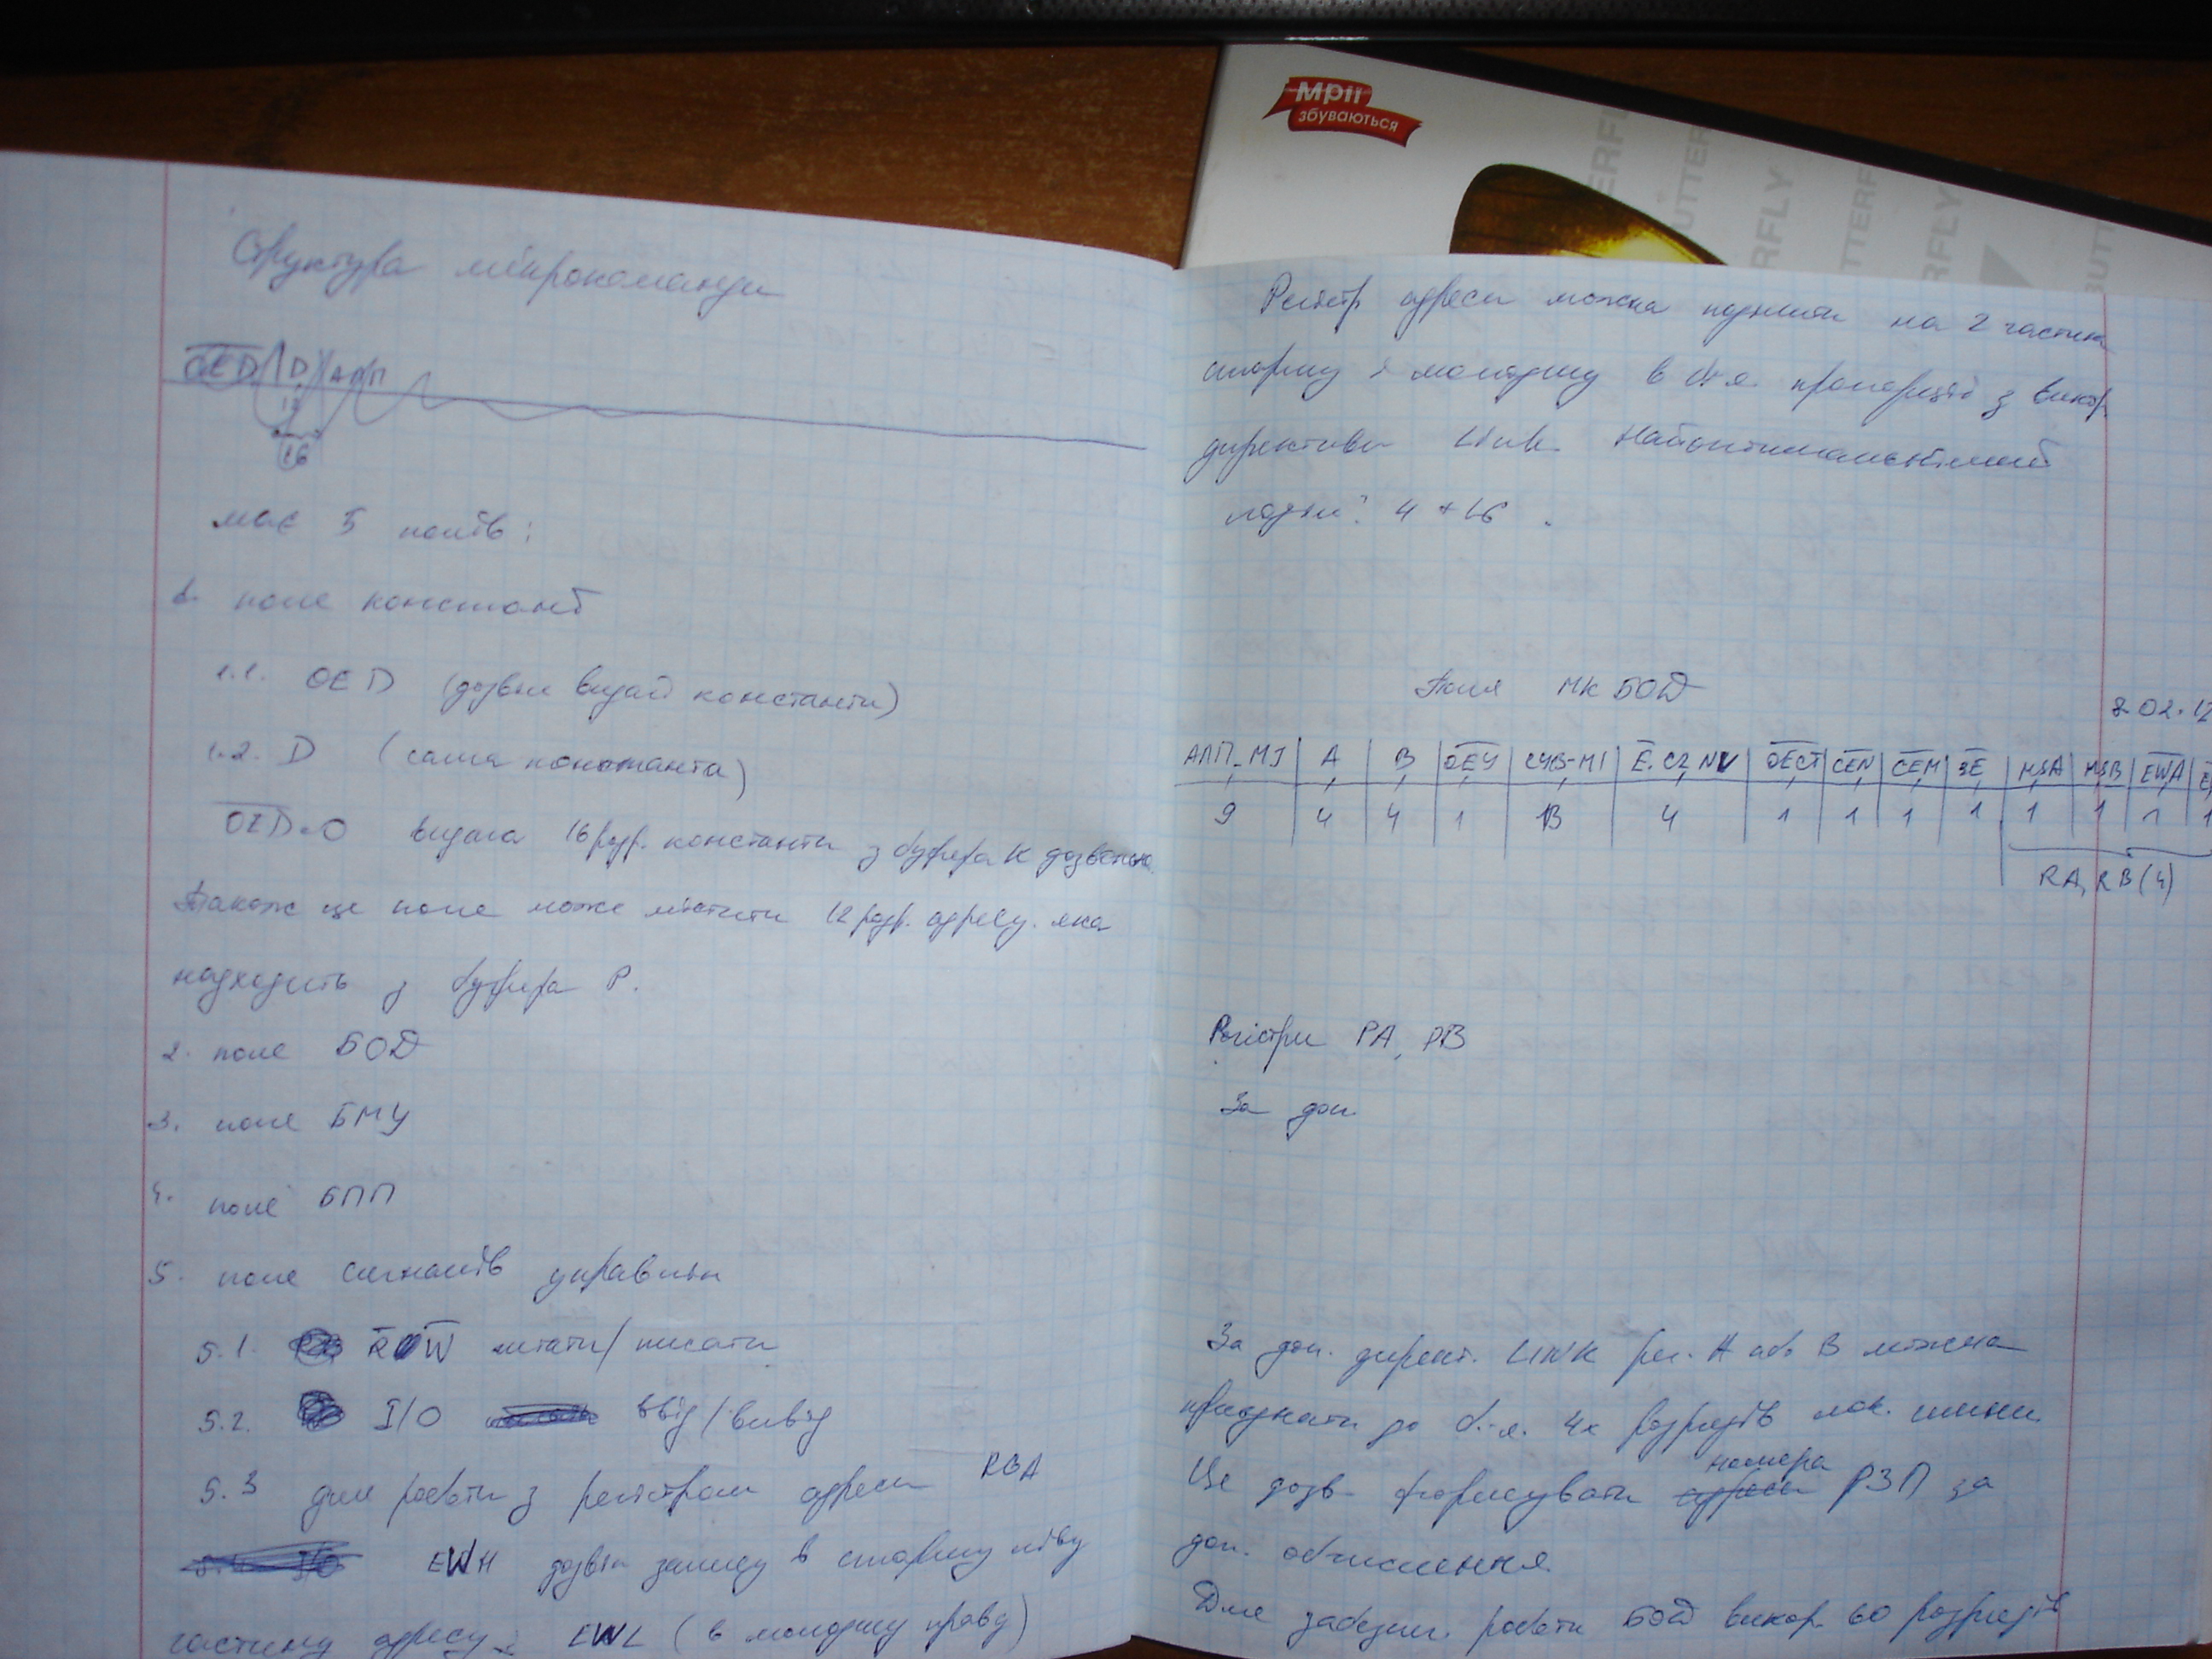 Структура мікрокоманди
OED D АЛП
12
16
має 5 полів:
1. поле констант
1.1. OED (дозвіл видачі константи)
1.2. D (сама константа)
OED=0 видача 16 розр. константи з буфера К дозволена.
Також це поле може містити 12 розр. адресу. яка
надходить з буфера Р.
2. поле БОД
3. поле БМУ
4. поле БПП
5. поле сигналів управлін
5.1. R W читати/писати
5.2. I/O ввід/вивід
5.3 для роботи з регістром адреси RGA
EWH дозвіл запису в старшу ліву
частину адресу EWL (в молодшу праву)
Мрії
збуваються
BUTTERFLY
Регістр адреси можна поділити на 2 частини
старшу і молодшу в б-я. пропорції з викор
директиви Link. Найоптимальніший
поділ: 4 + 16.
Поля МК БОД
8.02.12
АЛП_МІ А В OEY СУВ-МІ E.CZ NV OECT CEN CEM SE MSA MSB EWA E
9 4 4 1 13 4 1 1 1 1 1 1 1 1
RA, RB (4)
Регістри РА, РВ
За доп.
За доп. директ. LINK рег. А або В можна
приєднати до б.-я. 4х розрядів лок. шини.
номера
Це дозв. формувати адреси РЗП за
доп. обчислення.
Для забезпеч. роботи БОД викор. 60 розрядів